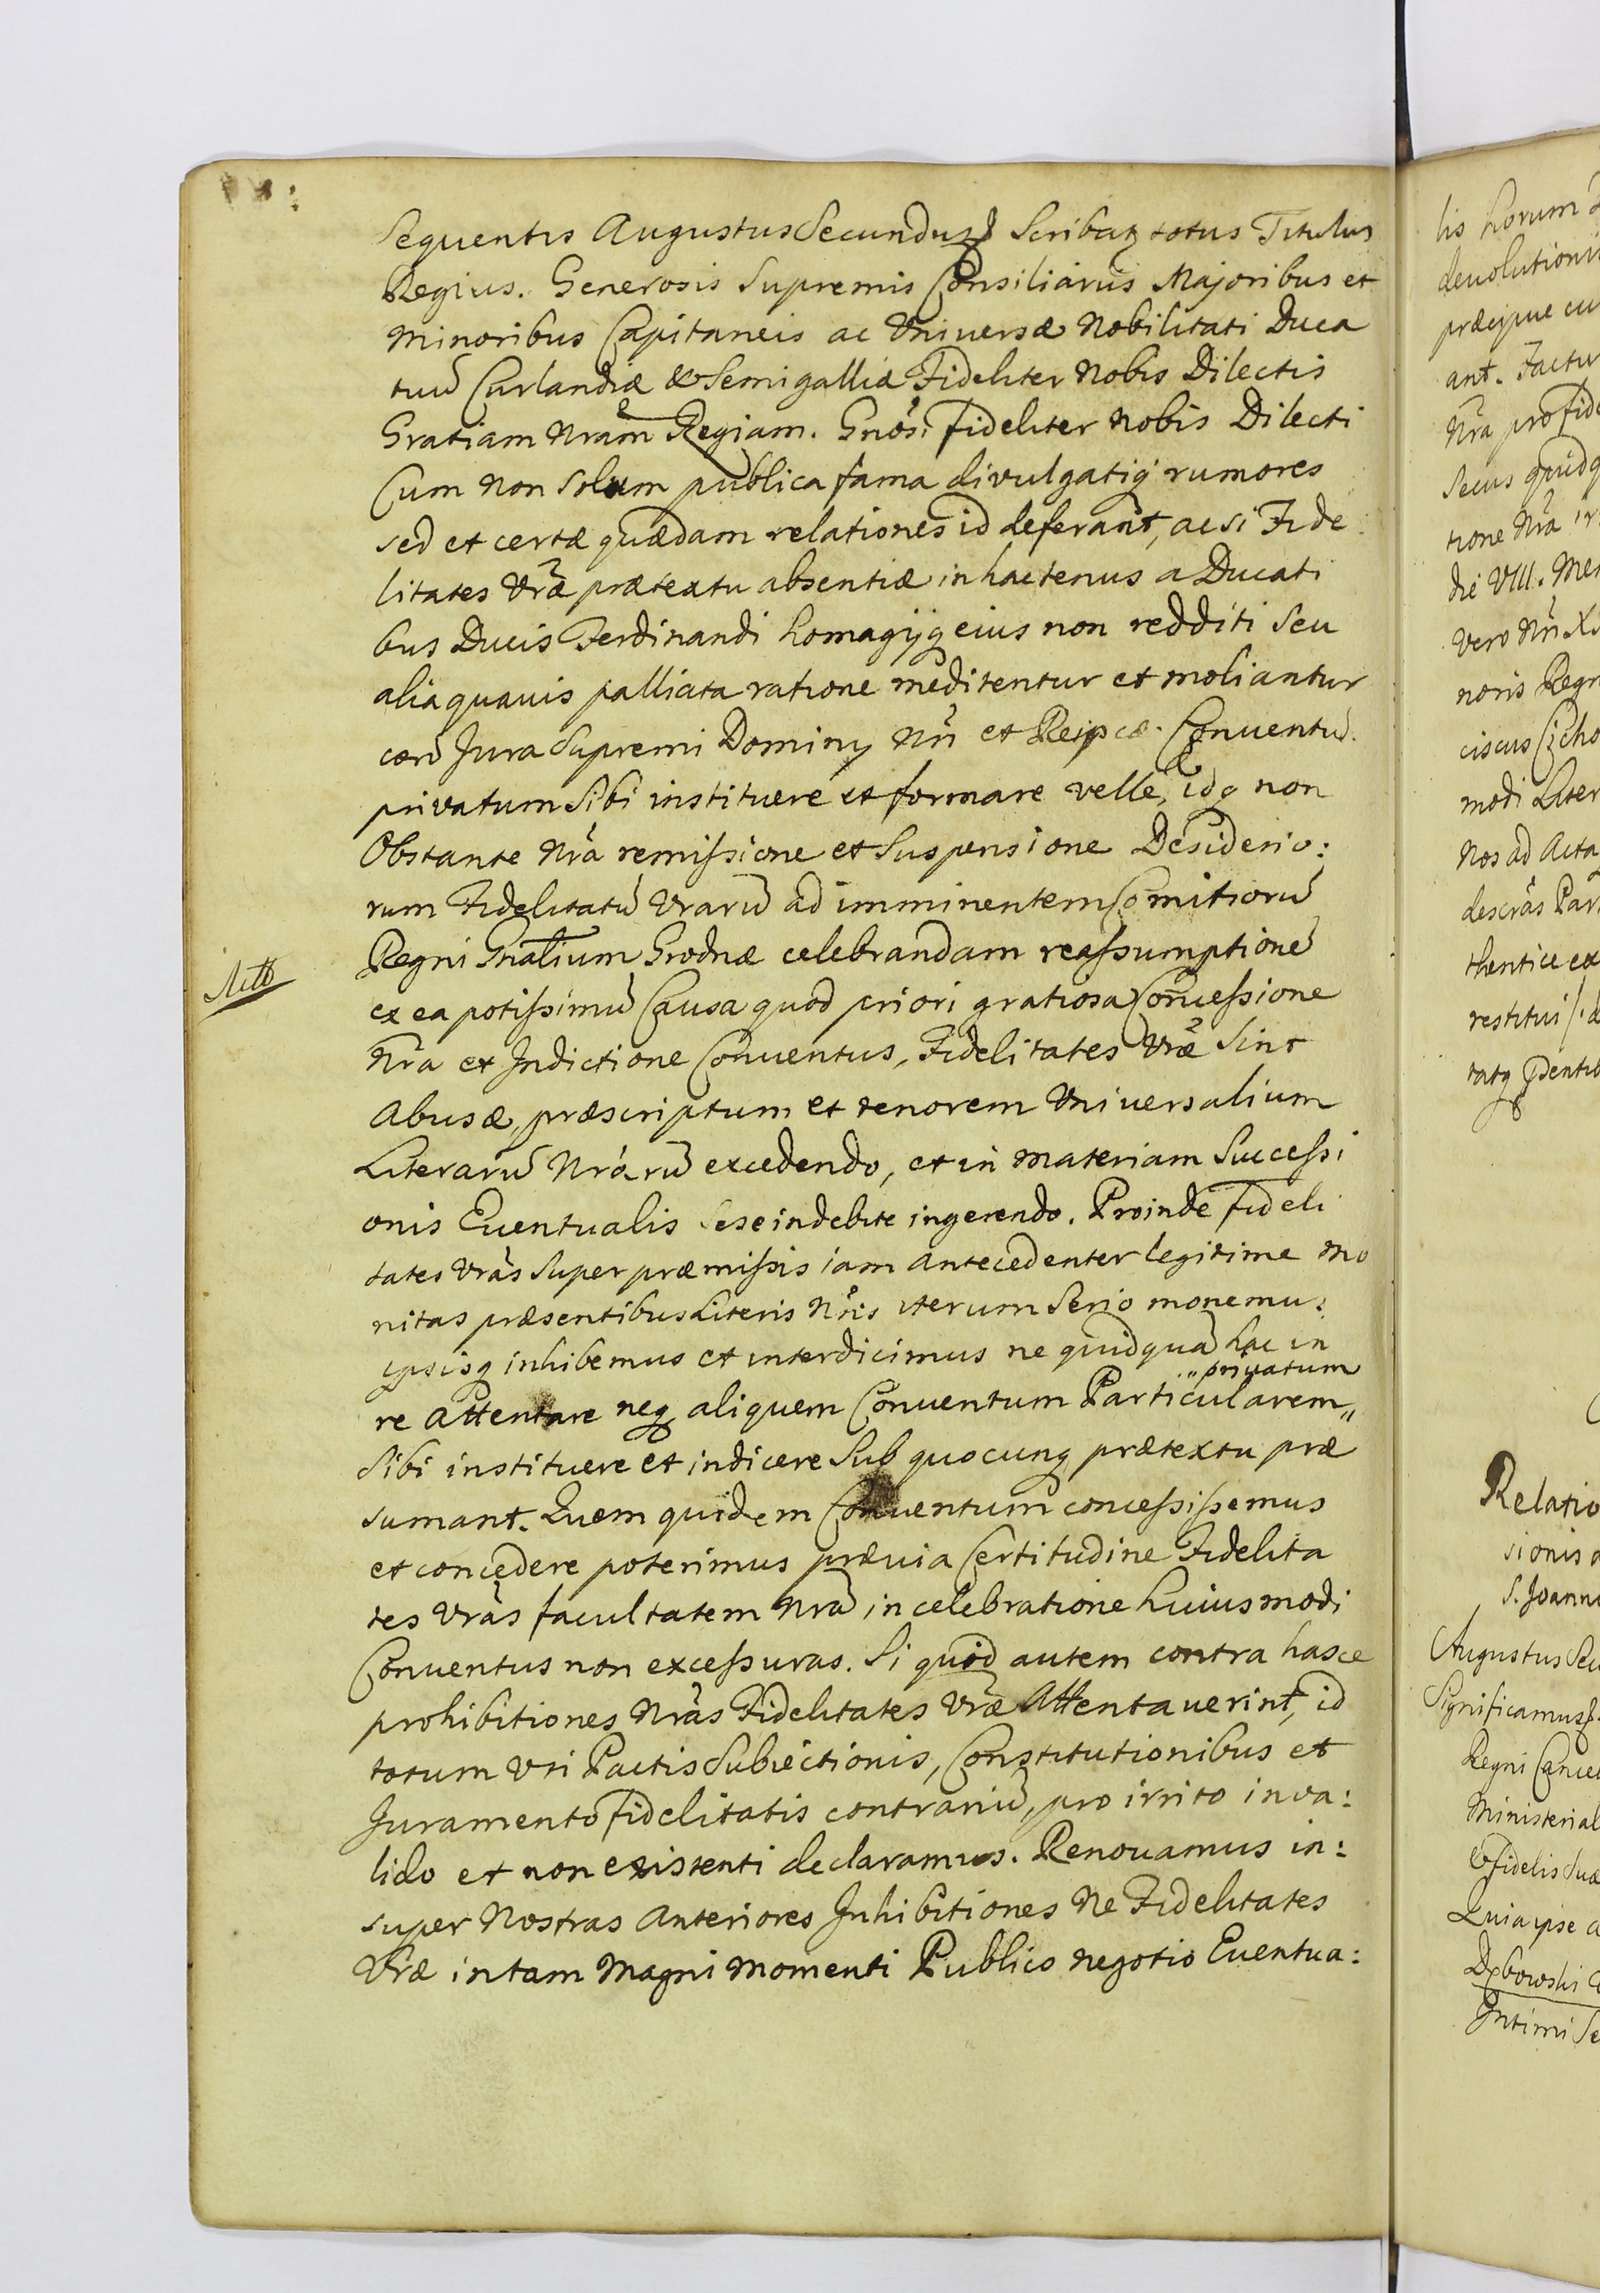 Sequentis Augustus Secundus Scribatz totus Titulus
Regius. Generosis Supremis Consiliariis Majoribus et
Minoribus Capitaneis ac Universæ Nobilitati Duca
tuū Curlandiæ & Semigalliæ Fideliter Nobis Dilectis
Gratiam Nram̃ Regiam. Gnosi fideliter Nobis Dilecti
Cum non solum publica fama divulgatiq rumores
sed et certæ quædam relationes id deferant, ac si Fide
litates Vræ prætextu absentiæ in hactenus a Ducati
bus Ducis Ferdinandi homagijq eius non redditi Seu
alia quavis palliata ratione meditentur et moliantur
Jura Supremi Dominij Nri et Reipcæ. Conventū
privatum Sibi instituere et formare velle, idq non
Obstante Nra remissione et Suspensione Desiderio:
rum Fidelitatū Vrarū ad imminentem Comitiorū
Regni Gnalium Grodnæ celebrandam reassumptionē
ex ea potissimū Causa quod priori gratiosa Concessione
Nra et Indictione Conventus, Fidelitates Vræ Sint
Abusæ, præscriptum et tenorem Universalium
Literarū Nrarū excedendo, et in Materiam Successi
onis Eventualis Sese indebite ingerendo. Proinde fideli
tates Vras Super præmissis iam Antecedenter legitime Mo
nitas præsentibus Literis Nris iterum Serio monemu:
ipsisq inhibemus et interdicimus ne quidquā hac in
„privatum
re Attentare neq aliquem Conventum Particularem„
Sibi instituere et indicere Sub quocunq prætextu præ
sumant. Quem quidem Conventum concessissemus
et concedere poterimus prævia Certitudine Fidelita
tes Vras facultatem Nrā in celebratione huiusmodi
Conventus non excessuras. Si quid autem contra hasce
prohibitiones Nras Fidelitates Vræ Attentaverint, id
totum Vti Pactis Subiectionis, Constitutionibus et
Juramento fidelitatis contrariū, pro irrito inva:
lido et non existenti declaramus. Renovamus in:
super Nostras Anteriores Inhibitiones Ne Fidelitates
Vræ in tam Magni Momenti Publico Negotio Eventua:
lis horum
devolutionis
præcipue cu
ant. Factur
Nra pro fide
Secus quidq
tione Nra
die VIII. Men
vero Nri
noris Regn
ciscus Cicho
modi Liter
Nos ad Acta
thentice ex
restitui
Relatio
sionis
S. Joann
Augustus Secu
Significamus
Regni Cancel
Ministerial
Quia ipse a
Intimi Se